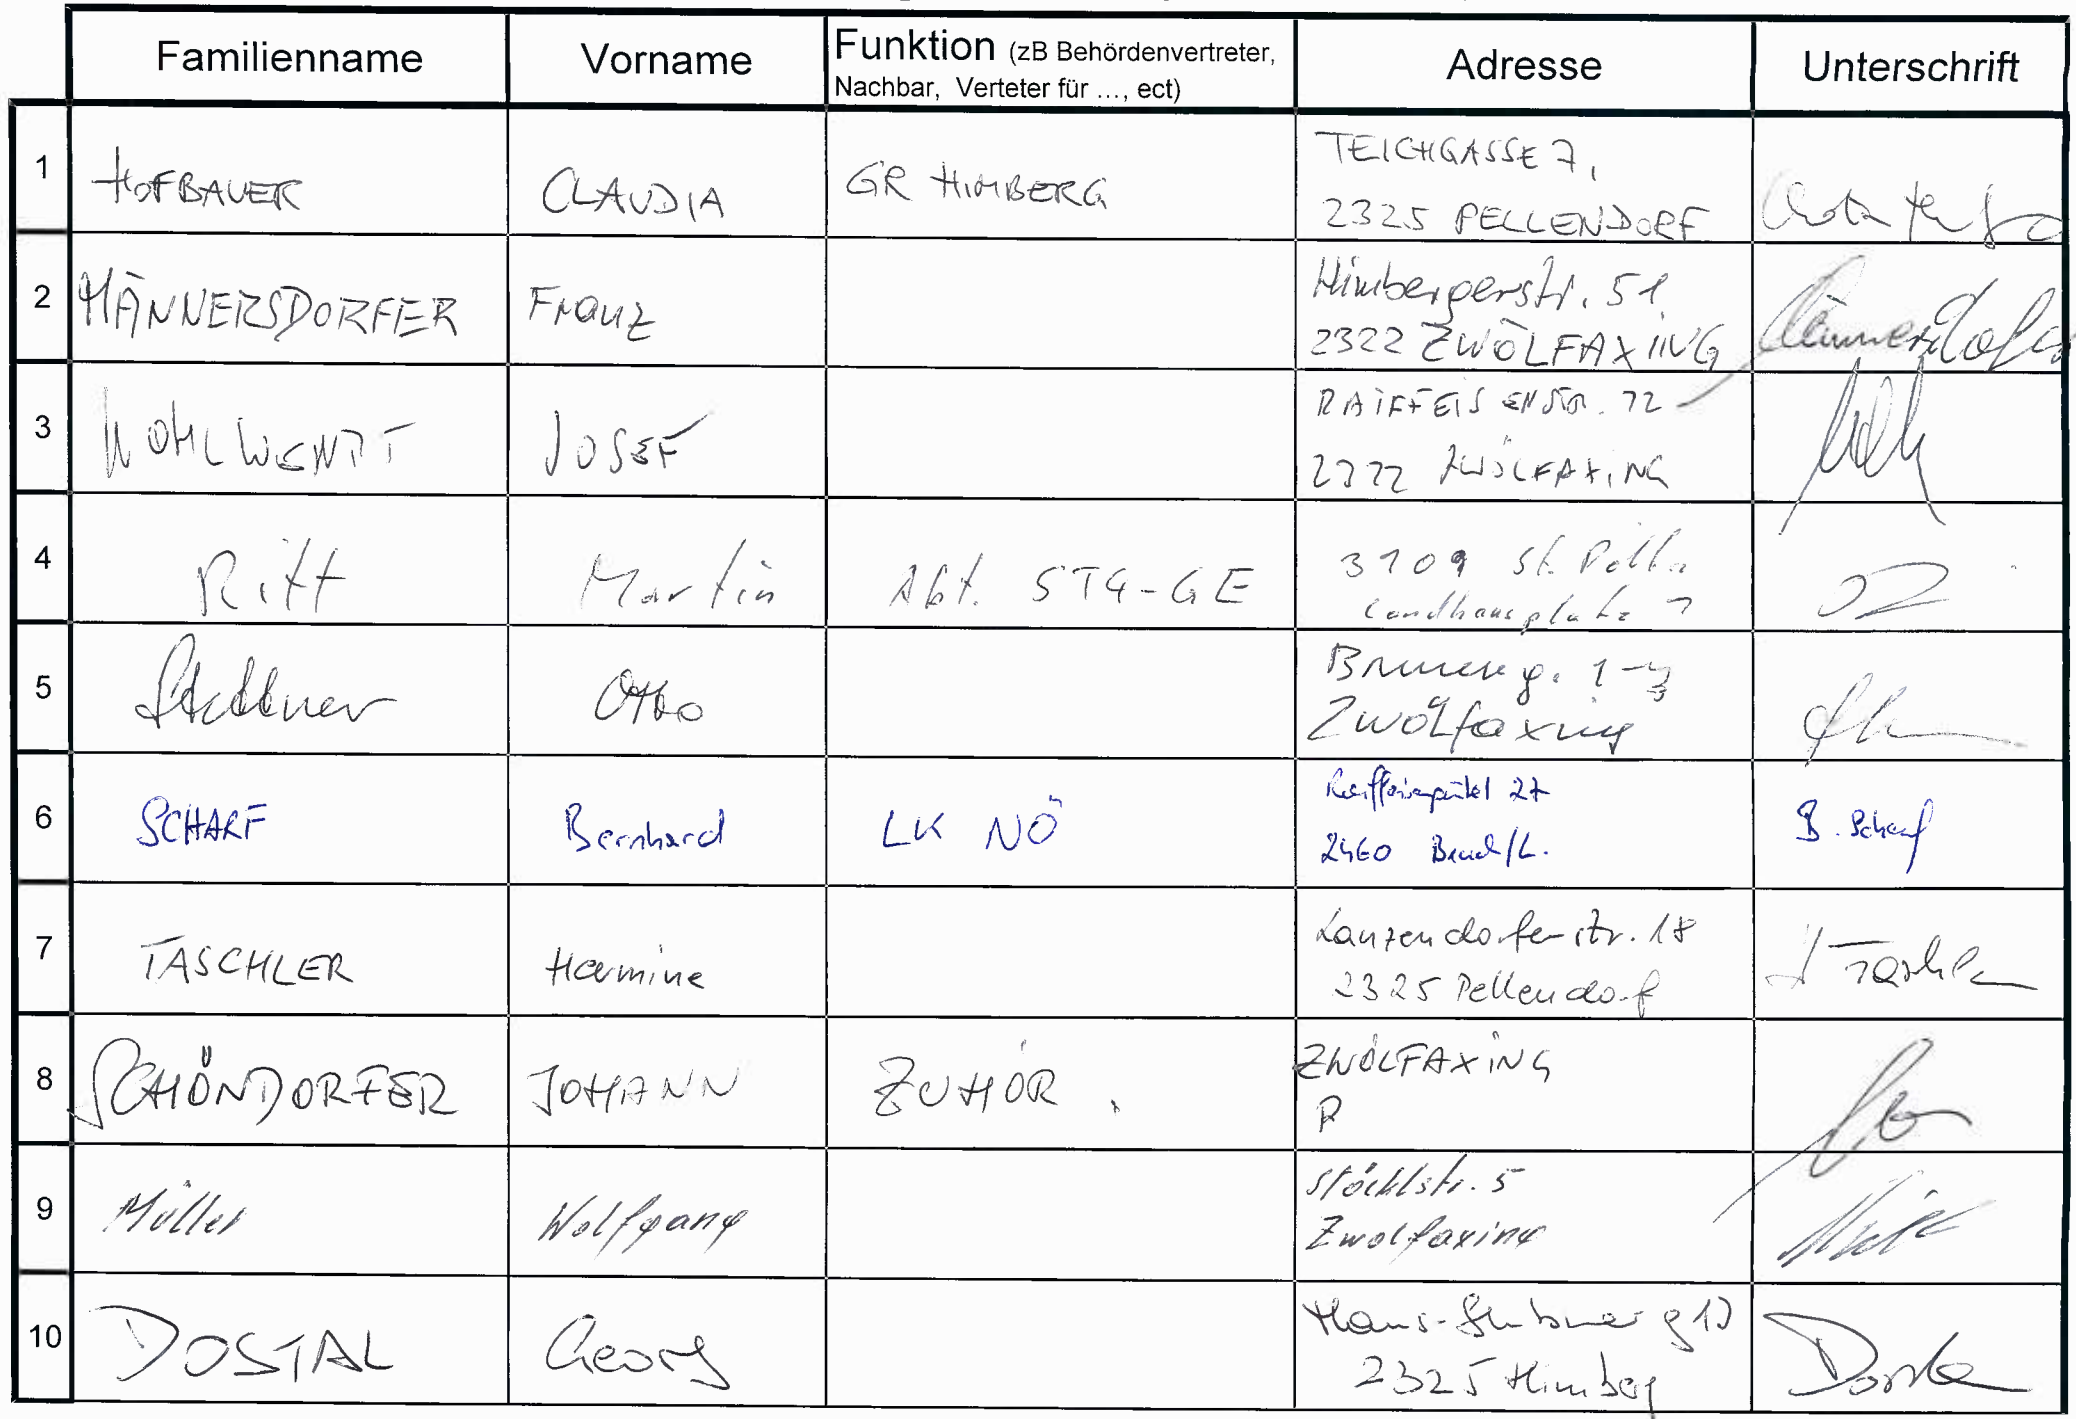 Familienname Vorname Funktion (zB Behördenvertreter, Nachbar, Verteter für ..., ect) Adresse Unterschrift
1 HOFBAUER CLAUDIA GR HIMBERG TEICHGASSE 7,
2325 PELLENDORF
2 MÄNNERSDORFER Franz Himbergerstr. 51
2322 ZWÖLFAXING
3 WOHL JOSEF RAIFFEISENSTR. 12
2322 ZWÖLFAXING
4 Ritt Martin Abt. ST4-GE 3109 St. Pölten
Landhausplatz 1
5 Otto Zwölfaxing
6 SCHARF Bernhard LK NÖ 27
2460 Bruck/L. B. Scharf
7 TASCHLER Hermine Lanzendorferstr. 18
2325 Pellendorf H Taschler
8 SCHÖNDORFER JOHANN ZUHÖR. ZWÖLFAXING
9 Müller Wolfgang Stöcklstr. 5
Zwölfaxing
10 DOSTAL Georg
2325 Himberg